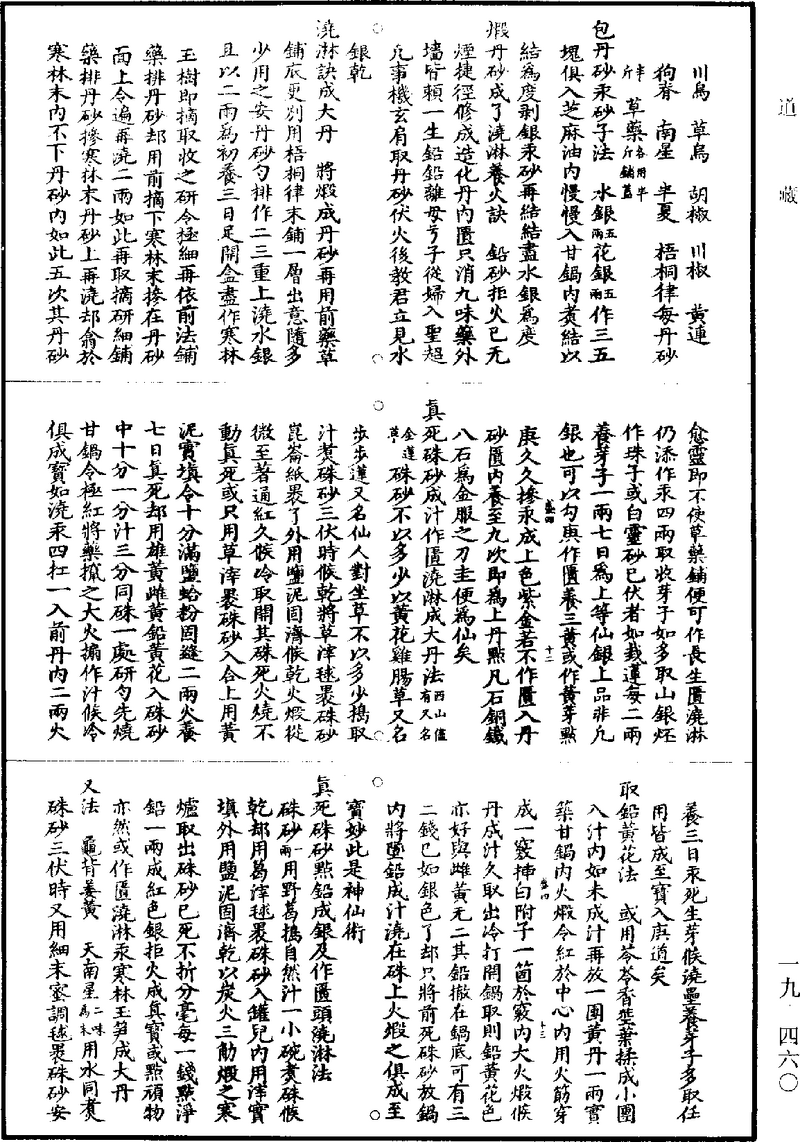 道藏
川烏 草烏 胡椒 川椒 黃連
狗脊 南星 半夏 梧桐律每丹砂
半斤 草藥各用半斤鋪蓋
包丹砂汞砂子法 水銀五兩花銀五兩作三五
塊俱入芝麻油內慢慢入甘鍋內煑結以
結為度剥銀汞砂再結結盡水銀為度
煅丹砂成了澆淋養火訣 鉛砂拒火已无
煙捷徑修成造化丹內匱只消九味藥外
墻皆賴一生鉛鉛離母兮子從婦入聖超
凡事機玄肩取丹砂伏火後教君立見水
銀乾
澆淋訣成大丹 將煅成丹砂再用前藥草
鋪底更別用梧桐律末鋪一層出意隨多
少用之安丹砂勺排作二三重上澆水銀
且以二兩為初養三日足開盒盡作寒林
玉樹即摘取收之研令極細再依前法鋪
藥排丹砂却用前摘下寒林末摻在丹砂
面上令遍再澆二兩如此再取摘研細鋪
藥排丹砂摻寒林末丹砂上再澆却翕於
寒林末內不下丹砂內如此五次其丹砂
愈靈即不使草藥鋪便可作長生匱澆淋
仍添作汞四兩取收芽子如多取山銀坯
作珠子或白靈砂已伏者如栽蓮每二兩
養芽子一兩七日為上等仙銀上品非凡
銀也可以勾庚作匱養三黃或作黃芽點
庚久久摻汞成上色紫金若不作匱入丹
砂匱內養至九次即為上丹點凡石銅鐵
八石為金服之刀圭便為仙矣
真死硃砂成汁作匱澆淋成大丹法西山值有又名
金蓮草 硃砂不以多少以黃花雞腸草又名
步步蓮又名仙人對坐草不以多少搗取
汁煮硃砂三伏時候乾將草滓毬裹硃砂
崑崙紙裹了外用鹽泥固濟候乾火煅從
微至著通紅久候冷取開其硃死火燒不
動真死或只用草滓裹硃砂入合上用黃
泥實填令十分滿鹽蛤粉固縫二兩火養
七日真死却用雄黃雌黃鉛黃花入硃砂
中十分一分汁三分同硃一處研勻先燒
甘鍋令極紅將藥撾之大火搧作汁候冷
俱成寶如澆汞四扛一入前丹內二兩火
養三日汞死生芽候澆壘養芽子多取任
用皆成至寶入庚道矣
取鉛黃花法 或用苓苓香莖葉揉成小團
入汁內如未成汁再放一團黃丹一兩實
築甘鍋內火煅令紅於中心內用火筯穿
成一竅挿白附子一箇於竅內大火煅候
丹成汁久取出冷打開鍋取則鉛黃花色
亦好與雌黃无二其鉛撤在鍋底可有三
二錢已如銀色了却只將前死硃砂放鍋
內將墮鉛成汁澆在硃上火煅之俱成至
寶妙此是神仙術
真死硃砂點鉛成銀及作匱頭澆淋法
硃砂一兩用野葛搗自然汁一小碗煮硃候
乾却用葛滓毬裹硃砂入罐兒內用滓實
填外用鹽泥固濟乾以炭火三觔煅之寒
爐取出硃砂已死不折分毫每一錢點淨
鉛一兩成紅色銀拒火成真寶或點頑物
亦然或作匱澆淋汞寒林玉笋成大丹
又法 龜背姜黃 天南星二味為末用水同煮
硃砂三伏時又用細末蜜調毬裹硃砂安
一九·四六〇